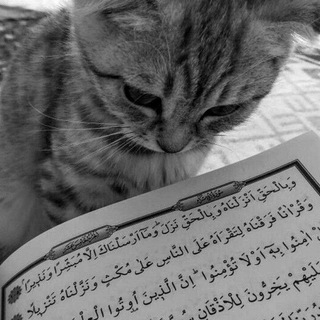 وَبِالْحَقِّ أَنْزَلْنَاهُ وَبِالْحَقِّ نَزَلَ وَمَا أَرْسَلْنَاكَ إِلَّا مُبَشِّرًا وَنَذِيرًا
وَقُرْآنًا فَرَقْنَاهُ لِتَقْرَأَهُ عَلَى النَّاسِ عَلَى مُكْثٍ وَنَزَّلْنَاهُ تَنْزِيلًا
اٰمِنُوا بِهِ أَوْ لَا تُؤْمِنُوا إِنَّ الَّذِينَ أُوتُوا
عَلَيْهِمْ يَخِرُّونَ لِلْأَذْقَانِ